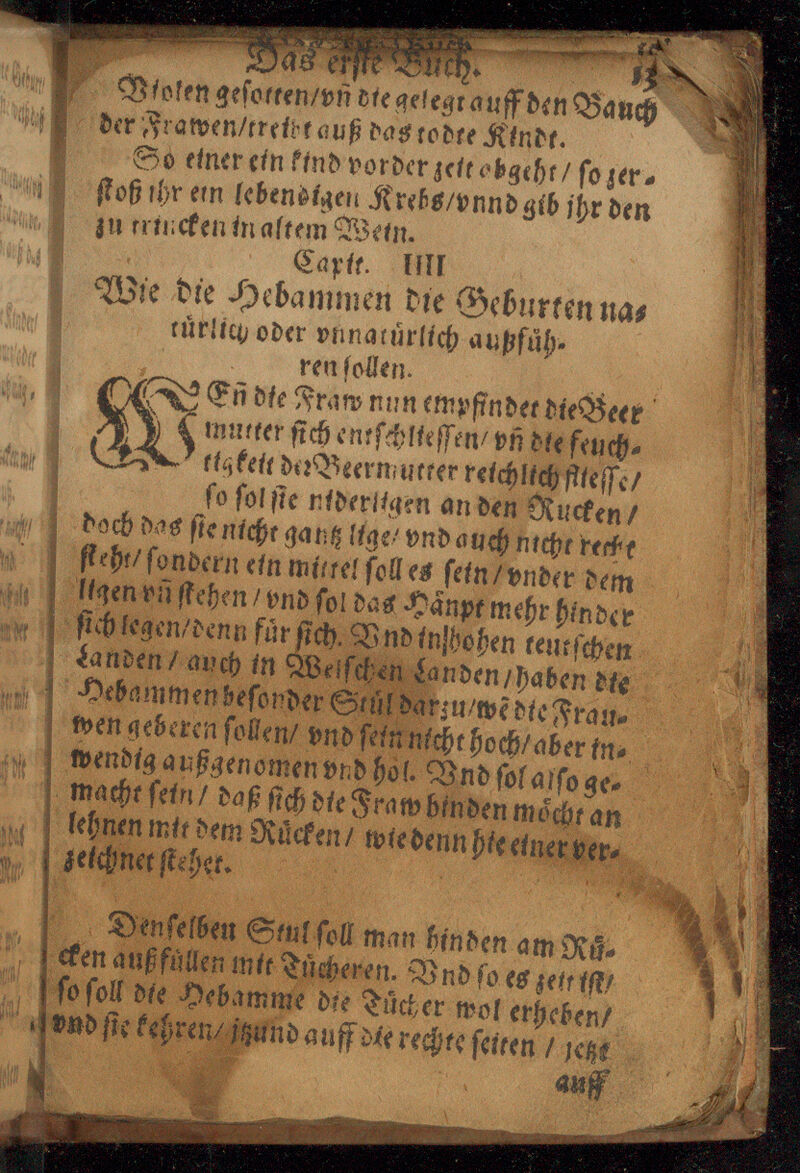 Das erste Buch.
Violen gesotten/vñ die gelegt auff den Bauch
der Frawen/treibt auß das todte Kindt.
So einer ein kind vor der zeit abgeht / so zer⸗
stoß ihr ein lebendigen Krebs/vnnd gib jhr den
zu trincken in altem Wein.
Capit. IIII
Wie die Hebammen die Geburten na⸗
türlich oder vnnatürlich außfüh⸗
ren sollen.
WEñ die Fraw nun empfindet die Beer
mutter sich entschliessen/ vñ die feuch⸗
tigkeit der Beermutter reichlich fliesse/
so sol sie niderligen an den Rucken/
doch das sie nicht gantz lige/ vnd auch nicht recht
steht/ sondern ein mittel soll es sein / vnder dem
ligen vñ stehen / vnd sol das Häupt mehr hinder
sich legen/denn für sich. Vnd in hohen teutschen
Landen / auch in Welschen Landen / haben die
Hebammen besonder Stül darzu/wē die Frau⸗
wen geberen sollen/ vnd sein nicht hoch/ aber in⸗
wendig außgenomen vnd hol. Vnd sol also ge⸗
macht sein / daß sich die Fraw hinden möcht an
lehnen mit dem Rücken/ wie denn hie einer ver⸗
zeichnet stehet.
Denselben Stul soll man hinden am Rü⸗
cken außfüllen mit Tücheren. Vnd so es zeit ist/
so soll die Hebamme die Tücher wol erheben/
vnd sie kehren/ jtzund auff die rechte seiten / jetzt
auff